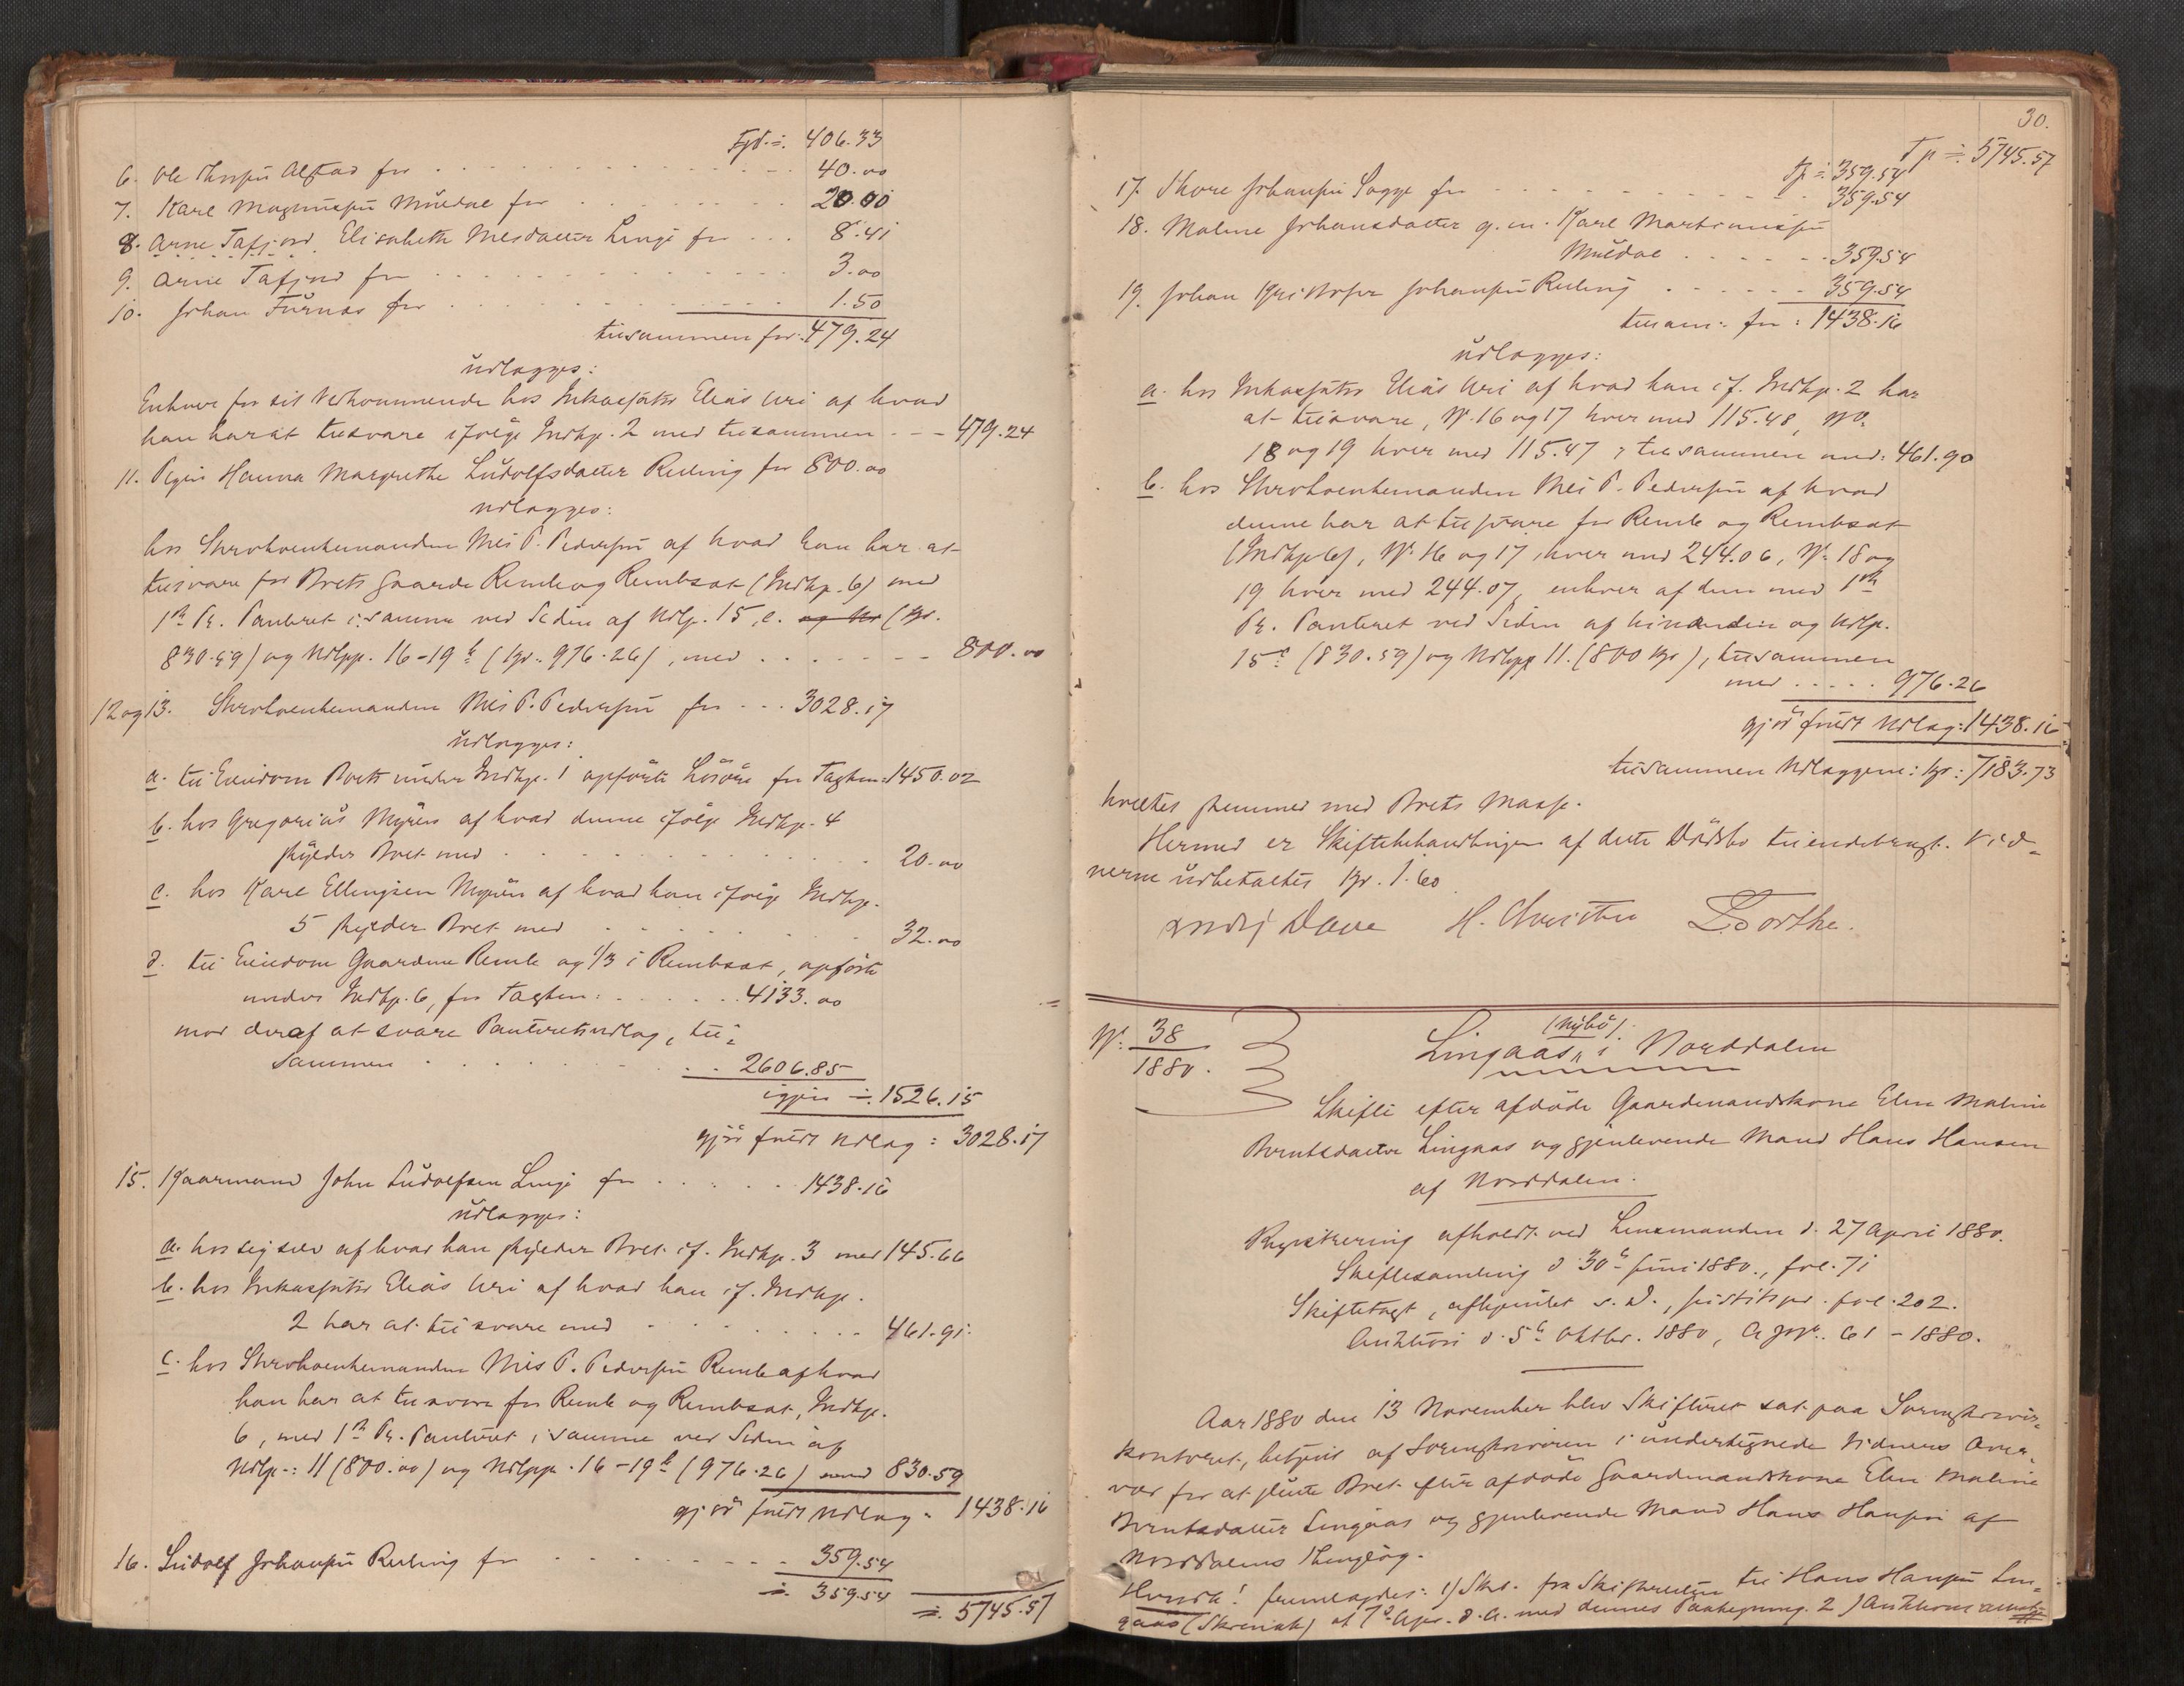 Fpt. ÷. 406.33
6. Ole Knusen Alstad for . . . 40.00
7. Karl Magnussen Muldal for . . . 20.00
8. Arne Tafjord Elisabeth Nilsdatter Linge for . . . 8.41
9. Arne Tafjord for . . . 3.00
10. Johan Furnæs for . . . 1.50
tilsammen for: 479.24
udlægges:
Enhver for sit Vedkommende hos Inkassator Elias Uri af hvad
han har at tilsvare ifølge Indtp. 2 med tilsammen - - 479.24
11. Pigen Hanna Margrethe Ludolfsdatter Relling for 800.00
udlægges:
hos Skrohoenkemanden Nils P. Pedersen af hvad han har at
tilsvare for Boets Gaarde Remle og Rembsæt (Indtp. 6) med
1ste Pr. Panteret i samme ved Siden af Udlp. 15, c. og Ud (Kr.
830.59) og Udlpp. 16-19 b (Kr. 976.26), med . . . 800.00
12 og 13. Enkemanden Nils P. Pedersen for - - - 3028.17
udlægges:
a. til Eiendom Boets under Indtp. 1 opførte Løsøre for Taxten: 1450.02
b. hos Gregorius Myren af hvad denne ifølge Indtp. 4
skylder Boet med . . . 20.00
c. hos Karl Ellingsen Myren af hvad han ifølge Indtp.
5 skylder Boet med . . . 32.00
d. til Eiendom Gaardene Remle og 1/3 i Rembsæt, opførte
under Indtp. 6, for Taxten: . . . 4133.00
mod deraf at svare Panteretsudlæg, til-
sammen . . . 2606.85
igjen ÷. 1526.15
gjør fuldt Udlæg: 3028.17
15. Gaarmand John Ludolfsen Linge for . . . 1438.16
udlægges:
a. hos sig selv af hvad han skylder Boet if. Indtp. 3 med 145.66
b. hos Inkassator Elias Uri af hvad han if. Indtp.
2 har at tilsvare med . . . 461.91
c. hos Enkemanden Nils P. Pedersen Remle af hvad
han har at tilsvare for Remle og Rembsæt, Indtp.
6, med 1ste Pr. Panteret i samme ved Siden af
Udlp.: 11 (800.00) og Udlpp. 16-19 b (976.26) med 830.59
gjør fuldt Udlæg: 1438.16
16. Ludolf Johansen Relling for . . . 359.54
÷. 359.54
÷. 5745.57
30.
Tp ÷ 5745.57
Tp ÷ 359.54
17. Thore Johansen Sagge for . . . 359.54
18. Maline Johansdatter g. m. Karl Martinussen
Muldal . . . 359.54
19. Johan Kristofer Johansen Relling . . . 359.54
tilsam: for: 1438.16
udlægges:
a. hos Inkassator Elias Uri af hvad han if. Indtp. 2 har
at tilsvare, No. 16 og 17 hver med 115.48, No.
18 og 19 hver med 115.47, tilsammen med: 461.90
b. hos Enkemanden Nils P. Pedersen af hvad
denne har at tilsvare for Remle og Rembsæt
(Indtp. 6), No. 16 og 17, hver med 244.06, No. 18 og
19 hver med 244.07, enhver af dem med 1ste
Pr. Panteret ved Siden af hinanden og Udlp.
15 c (830.59) og Udlpp 11. (800 Kr), tilsammen
med . . . . . 976.26
gjør fuldt Udlæg: 1438.16
tilsammen Udlæggene: Kr: 7183.73
hvilket stemmer med Boets Masse.
Hermed er Skiftebehandlingen af dette Dødsbo tilendebragt. Vid-
nerne udbetaltes Kr. 1.60
H. Christie
No. 38
1880.
(Nybø).
Lingaas, i Norddalen
Skifte efter afdøde Gaardmandskone Elen Maline
Berntsdatter Lingaas og gjenlevende Mand Hans Hansen
af Norddalen.
Registrering afholdt ved Lensmanden d. 27 April 1880.
Skiftesamling d 30te Juni 1880., fol. 71
Skiftetaxt, afhjemlet s. D., Justitspr. fol. 202.
Auktion d. 5te Oktbr. 1880, A. 61 - 1880.
Aar 1880 den 13 November blev Skifteret sat paa Sorenskriver-
kontoret, betjent af Sorenskriveren i undertegnede Vidners Over-
vær for at slutte Boet efter afdøde Gaardmandskone Elen Maline
Berntsdatter Lingaas og gjenlevende Mand Hans Hansen af
Norddalens Thinglag.
Hvorda! fremlagdes: 1) Skr. fra Skifteretten til Hans Hansen Lin-
gaas (Skrinak) af 7de Apr. d. A. med dennes Paategning. 2) Auktions